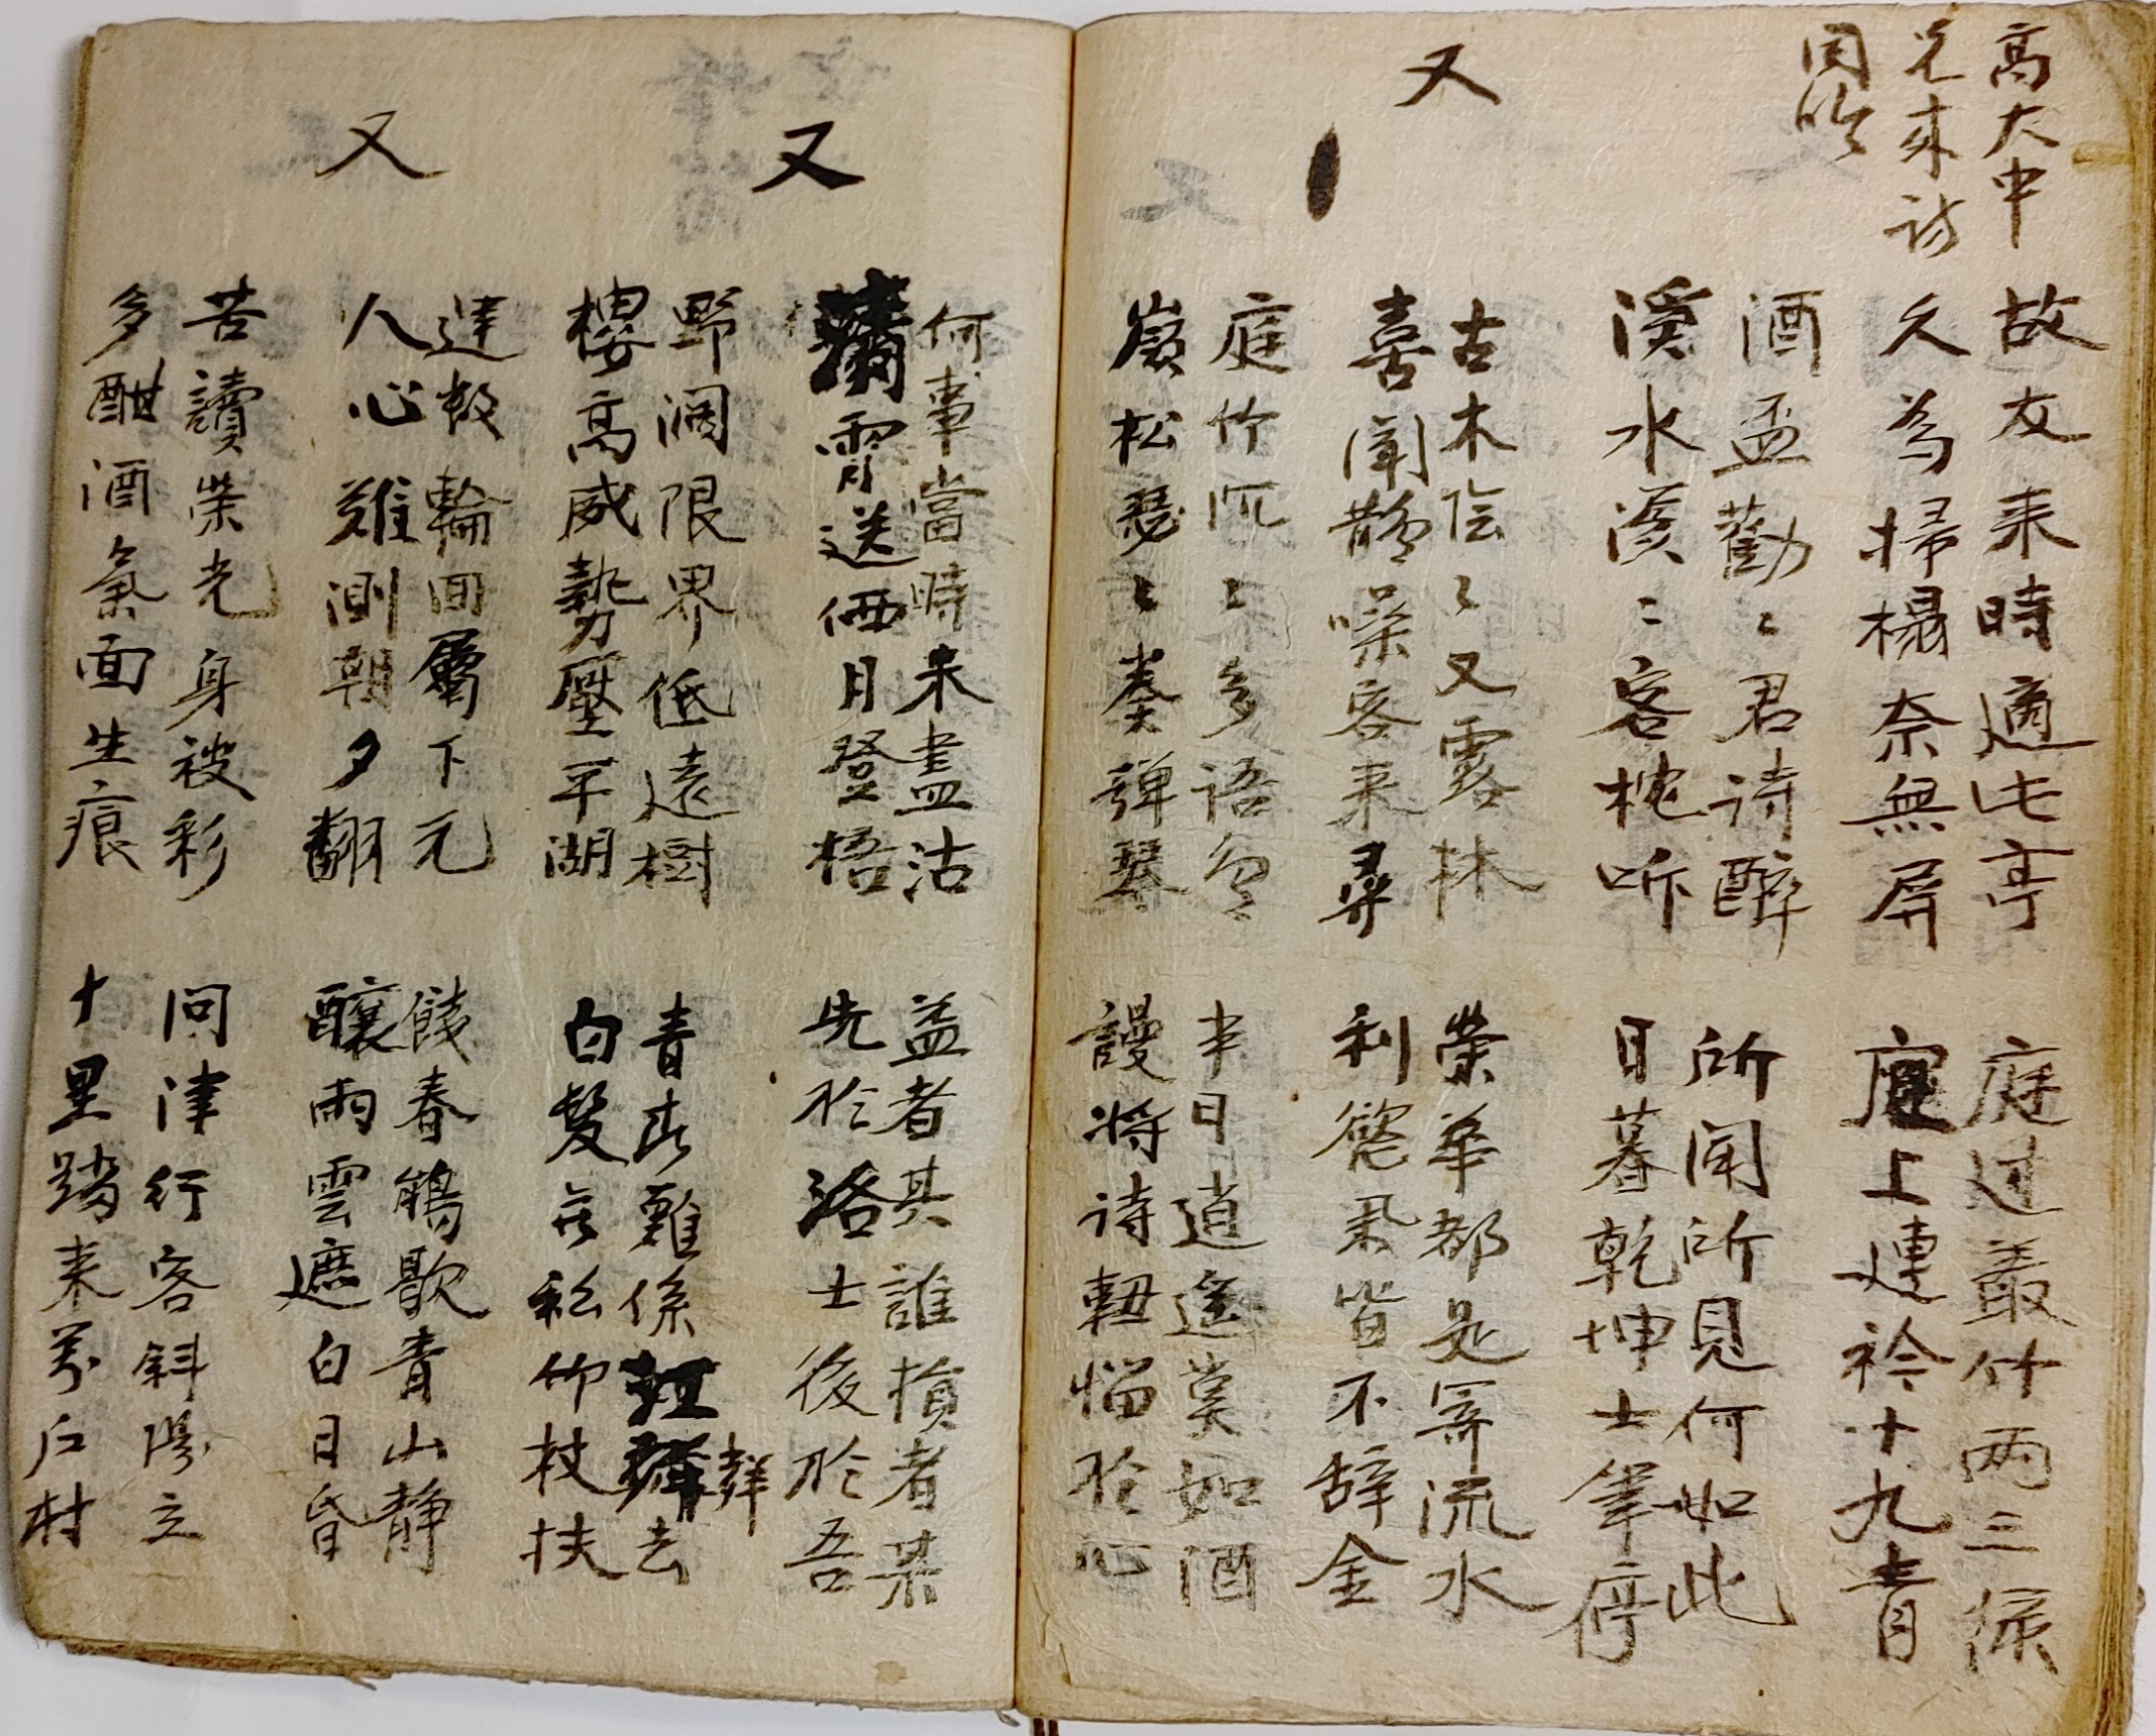 高大中
兄来訪
同吟
故友来時適此亭
久為掃榻奈無屏
庭过叢竹两三條
庭上連衿十九青
酒盃勸〻君诗醉
溪水溪〻客枕听
所聞所見何如此
日暮乾坤士筆停
又
古木陰〻又露林
喜聞鵲噪客来尋
荣華都是寄流水
利慾君皆不辞金
庭竹沉〻多语
巖松瑟〻奏弹琴
半日逍遥莫如酒
謾将诗軸惱於心
又
何事當時未盡沽
霄送俩月登梧
益者其誰損者某
先於洛士後於吾
野闊限界低遠樹
樓高威勢壓平湖
青春難係紅 去
白髮 私仰杖扶
又
輪回屬下元
人心難測朝夕翻
餞春鶴歌青山静
釀雨雲遮白日昏
苦讀荣光身被彩
多酣酒氣面生痕
问津行客斜陽立
十里踏来萬户村